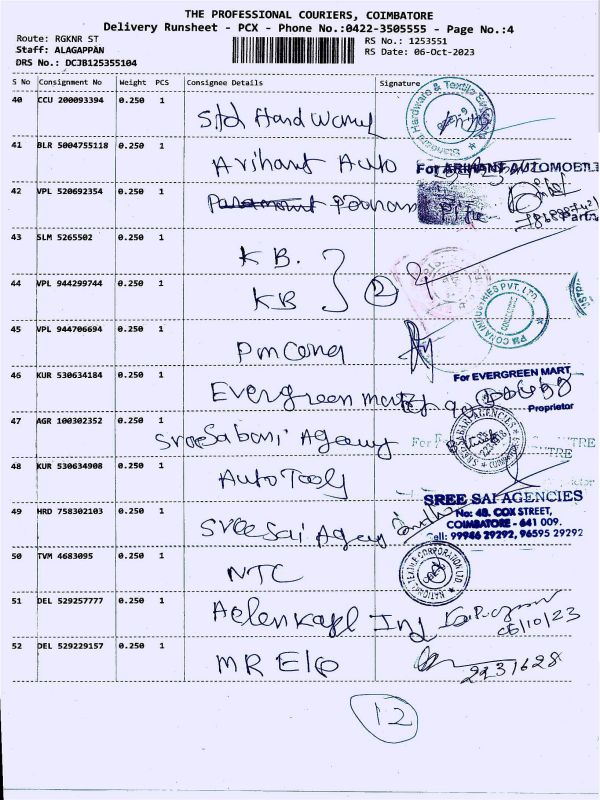 THE PROFESSIONAL COURIERS, COIMBATORE
Delivery Runsheet - PCX - Phone No.:0422-3505555 - Page No.:4
Route: RGKNR ST
RS No.: 1253551
Staff: ALAGAPPAN
RS Date: 06-Oct-2023
DRS No.: DCJB125355104
S No Consignment No Weight PCS Consignee Details Signature
40 CCU 200093394 0.250 1
Std Hardware
41 BLR 5004755118 0.250 1
Arihant Auto For ARIHANT AUTOMOBILE
42 VPL 520692354 0.250 1
Poonam
43 SLM 5265502 0.250 1
KB.
44 VPL 944299744 0.250 1
KB 2
PM CONA INDUSTRIES PVT. LTD.
45 VPL 944706694 0.250 1
Pmcona
46 KUR 530634184 0.250 1
For EVERGREEN MART
Evergreen mart
Proprietor
47 AGR 100302352 0.250 1
Sree Sabari Agency
SABARI AGENCIES
48 KUR 530634908 0.250 1
Auto Tools
49 HRD 758302103 0.250 1
SREE SAI AGENCIES
No: 48. COX STREET,
COIMBATORE - 641 009.
Cell: 99946 29292, 96595 29292
Sree Sai Agency
50 TVM 4683095 0.250 1
NTC
NATIONAL TEXTILE CORPORATION LTD
51 DEL 529257777 0.250 1
Ind
06/10/23
52 DEL 529229157 0.250 1
MR Ele
2231628
12